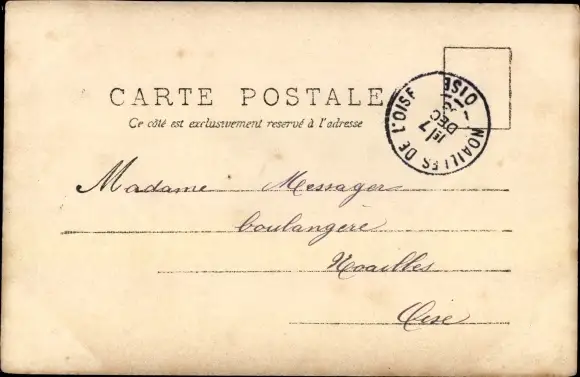 CARTE POSTALE
Ce côté est exclusivement reservé à l'adresse
NOAILLES DE L'OISE
OISE
17
DEC
Madame Messager
boulangère
Noailles
Oise